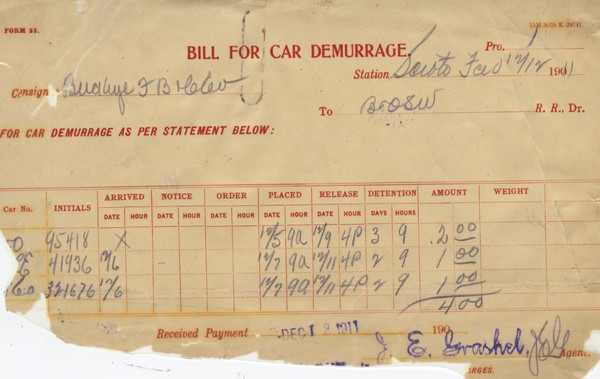 FORM 23.
BILL FOR CAR DEMURRAGE. Pro.
Station Scioto 12/12 1911
Consign Buckeye F B
To B&OSW R. R., Dr.
FOR CAR DEMURRAGE AS PER STATEMENT BELOW:
Car No. INITIALS ARRIVED NOTICE ORDER PLACED RELEASE DETENTION AMOUNT WEIGHT
DATE HOUR DATE HOUR DATE HOUR DATE HOUR DATE HOUR DAYS HOURS
95418 X 12/5 9a 12/9 4P 3 9 2 00
41936 12/6 - 12/7 9a 12/11 4P 2 9 1 00
321676 12/6 12/7 9a 12/11 4P 2 9 1 00
4 00
Received Payment DEC 18 1911 190
J. E. Agent.
RGES.